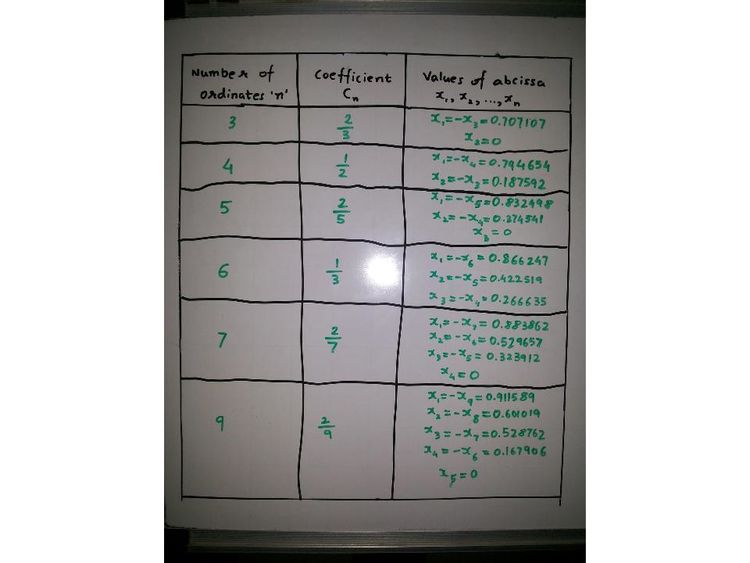 Number of ordinates 'n'
Coefficient Cₙ
Values of abcissa x₁, x₂, ..., xₙ
3
2/3
x₁=-x₃=0.707107
x₂=0
4
1/2
x₁=-x₄=0.794654
x₂=-x₃=0.187592
5
2/5
x₁=-x₅=0.832498
x₂=-x₄=0.374541
x₃=0
6
1/3
x₁=-x₆=0.866247
x₂=-x₅=0.422519
x₃=-x₄=0.266635
7
2/7
x₁=-x₇=0.883862
x₂=-x₆=0.529657
x₃=-x₅=0.323912
x₄=0
9
2/9
x₁=-x₉=0.911589
x₂=-x₈=0.601019
x₃=-x₇=0.528762
x₄=-x₆=0.167906
x₅=0